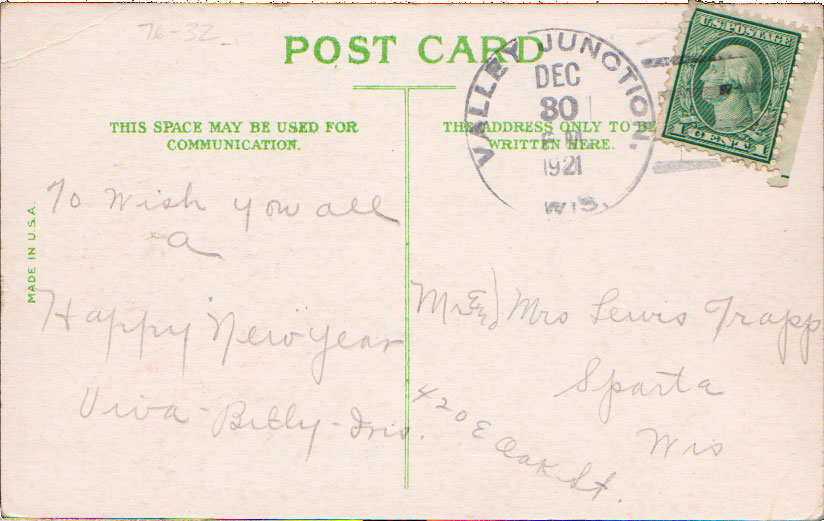 76-32
POST CARD
THIS SPACE MAY BE USED FOR
COMMUNICATION.
THE ADDRESS ONLY TO BE
WRITTEN HERE.
VALLEY JUNCTION,
DEC
30
PM
1921
WIS.
U.S. POSTAGE
1 CENT 1
MADE IN U.S.A.
To Wish you all
-a
Happy New year
Viva-Billy-Iris.
Mr & Mrs Lewis Trapp
Sparta
Wis
420 E Oak St.